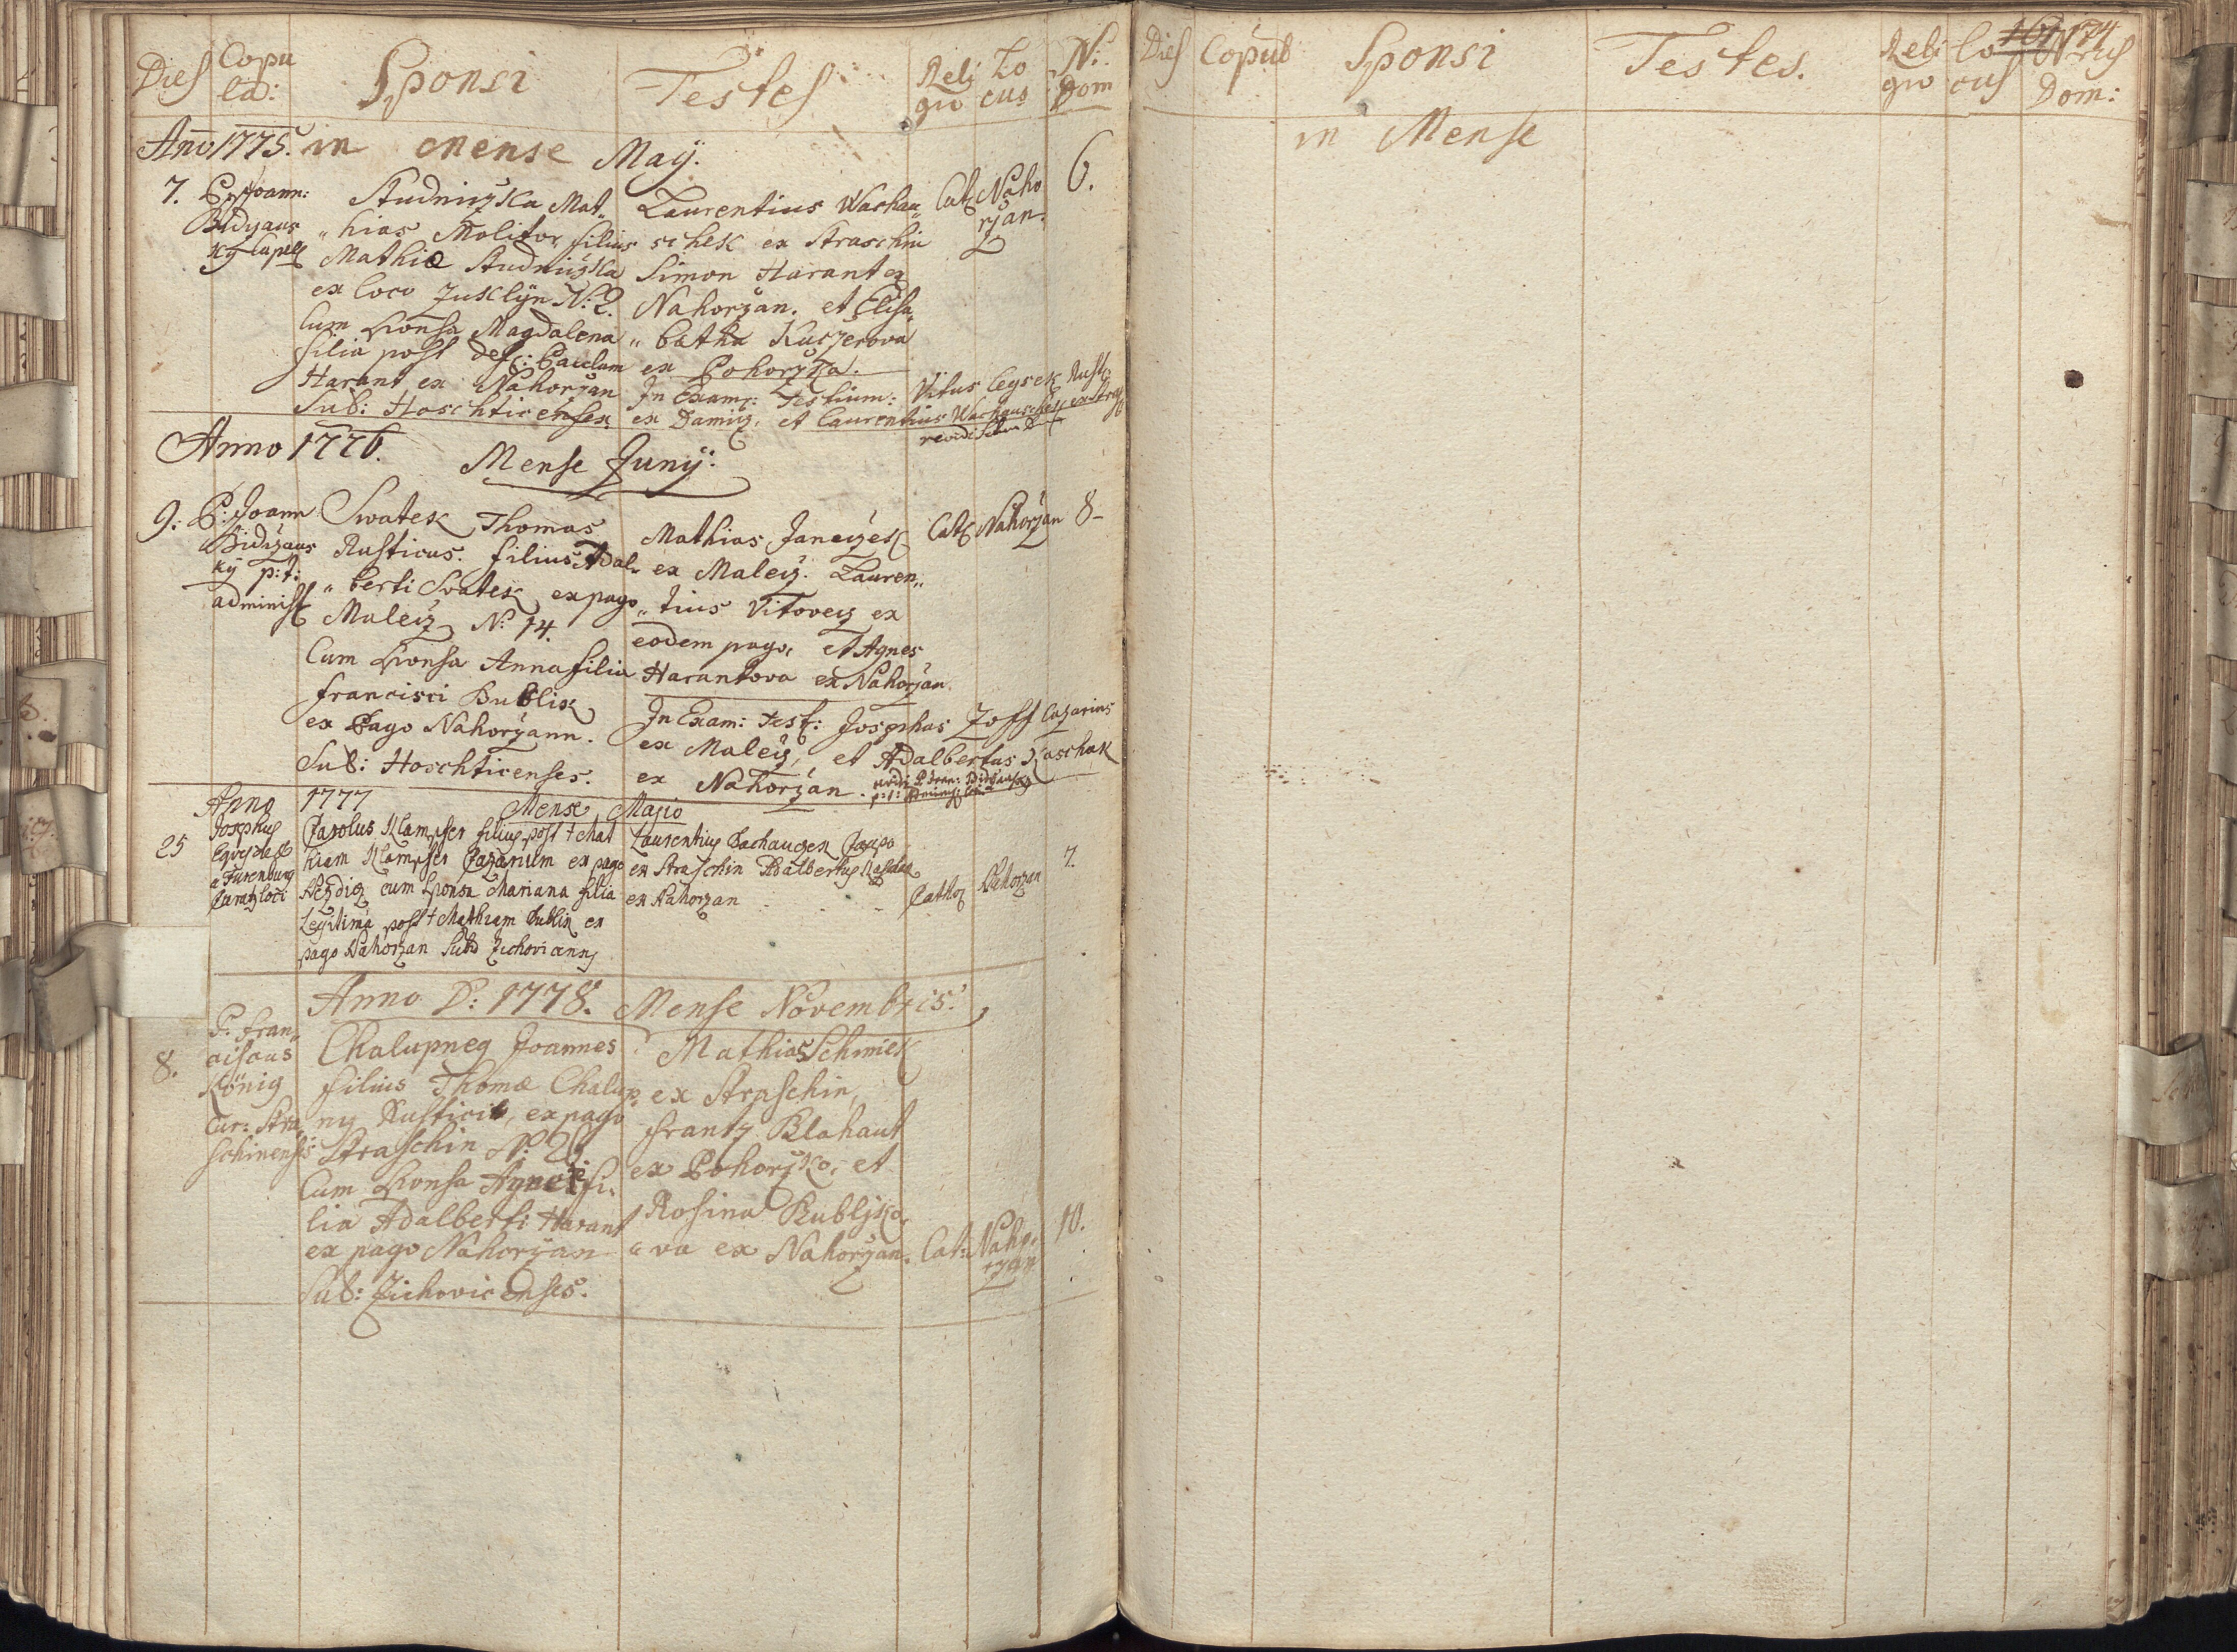 Dies Copu
la: Sponsi Testes Reli
gio Lo
cus N:
Dom
Año 1775. in Mense Maÿ.
7. P: Joann:
Bidziaus
kÿ Capell
Studniczka Mat„
„hias Molitor filius
Mathiæ Studniczka
ex loco Jusklÿn N: 2.
Cum Sponsa Magdalena
filia post def: Paulum
Harant ex Nahorzan
Sub: Hoschticenses.
Laurentius Wachau„
schek ex Straschin
Simon Harant ex
Nahorzan. et Elisa„
„betha Kuczerova
ex Pohorzka.
In Exam: Testium: Vitus Cysek Rust:
ex Damicz. et Laurentius Wachauschek ex Stra
Cath: Naho
rzan. 6.
Anno 1776. Mense Junÿ:
9: P: Joann
Bidziaus
kÿ p: t:
administ
Swatek Thomas
Rusticus. filius Adal„
„berti Svatek ex pago
Malecz N: 14.
Cum Sponsa Anna filia
Francisci Bublik
ex Pago Nahorzann.
Sub: Hoschticenses.
Mathias Janeczek
ex Malecz. Lauren„
„tius Vitovecz ex
eodem pago, et Agnes
Harantova ex Nahorzan
In Exam: Test: Josephus Zoff Cazarius
ex Malecz, et Adalbertus Kaschak
ex Nahorzan.
Cath Nahorzan 8–
Anno 1777 Mense Majo
25 Josephus
a Furenburg
loci
Carolus Klampfer filius post † Mat
hiam Klampfer Cazarium ex pago
Nezdicz cum Sponsa Mariana filia
Legitima post † Mathiam Bublik ex
pago Nahorzan Subd Zichovianus
Laurentius Bachauczek
ex Straschin Adalbertus Kaschak
ex Nahorzan
Cathol Nahorzan 7.
Anno D: 1778. Mense Novembris.
8. P. Fran„
ciscus
König
Cur: Stra
schinensis
Chalupneg Joannes
filius Thomæ Chalup„
ny Rustici, ex pago
Straschin N: 26.
Cum Sponsa Agnes fi„
lia Adalberti Harant
ex pago Nahorzan
Sub: Zichovicenses.
Mathias Schmiek
ex Straschin,
Frantz Blahaut
ex Pohorzko, et
Rosina Bublizko„
„va ex Nahorzan.
Cat: Naho„
rzan 10.
Dies Copul Sponsi Testes. Reli
gio Lo
cus Nrus
Dom:
in Mense